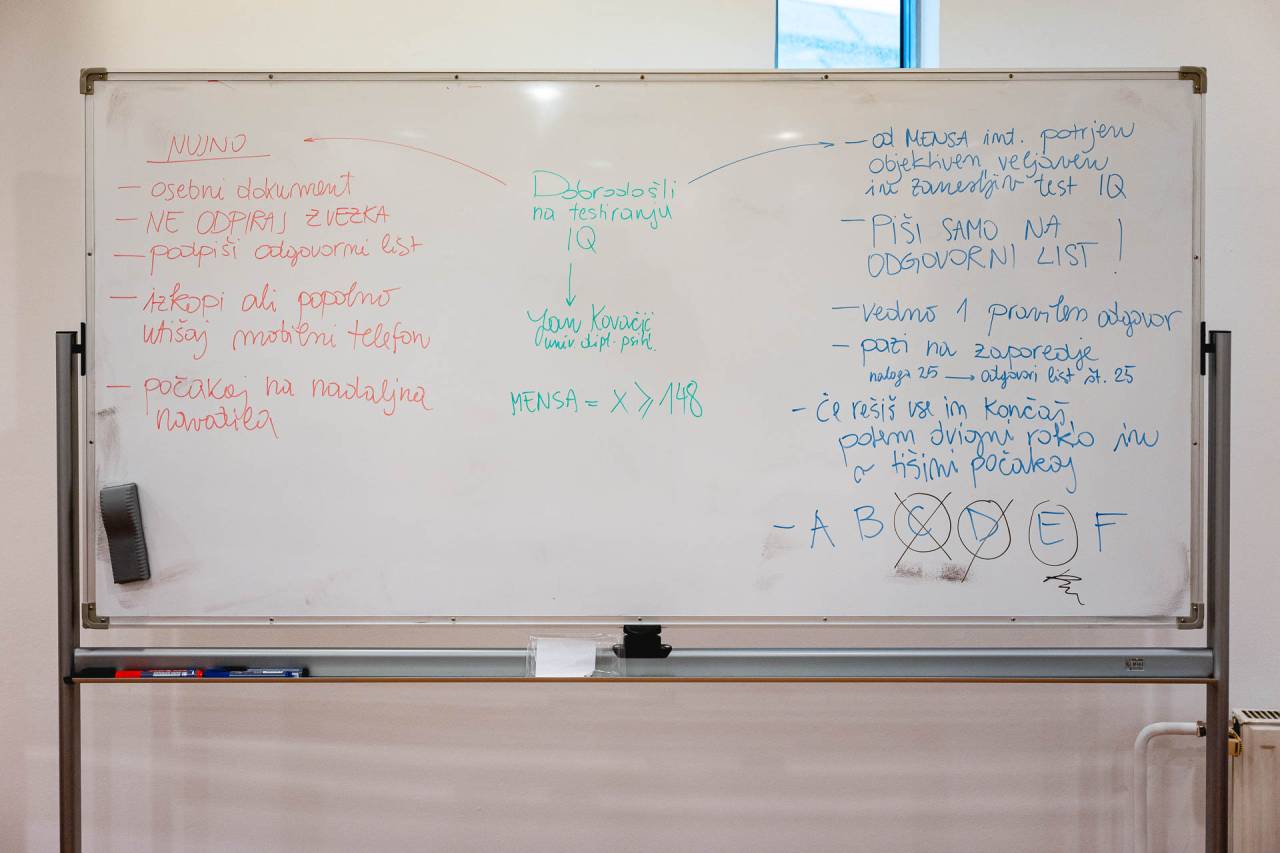 NUJNO
– osebni dokument
– NE ODPIRAJ ZVEZKA
– podpiši odgovorni list
– izkopi ali popolno
utišaj mobilni telefon
– počakaj na nadaljna
navodila
Dobrodošli
na testiranju
IQ
Jan Kovačič
univ. dipl. psih.
MENSA = X ⩾ 148
– od MENSA int. potrjen
objektiven, veljaven
in zanesljiv test IQ
– PIŠI SAMO NA
ODGOVORNI LIST !
– vedno 1 pravilen odgovor
– pazi na zaporedje
naloga 25 → odgovori list št. 25
– če rešiš vse in končaš,
potem dvigni roko in
v tišini počakaj
– A B C D E F